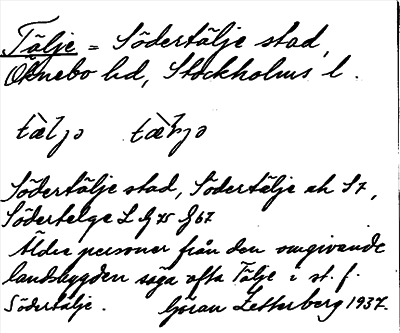 Tälje = Södertälje stad,
Öknebo hd, Stockholms l.
tæ̀ljə tæ̀ljə
Södertälje stad, Södertälje ek S7,
Södertelge L
Äldre personer från den omgivande
landsbygden säga ofta Tälje i st. f.
Södertälje. Göran Zetterberg 1937.